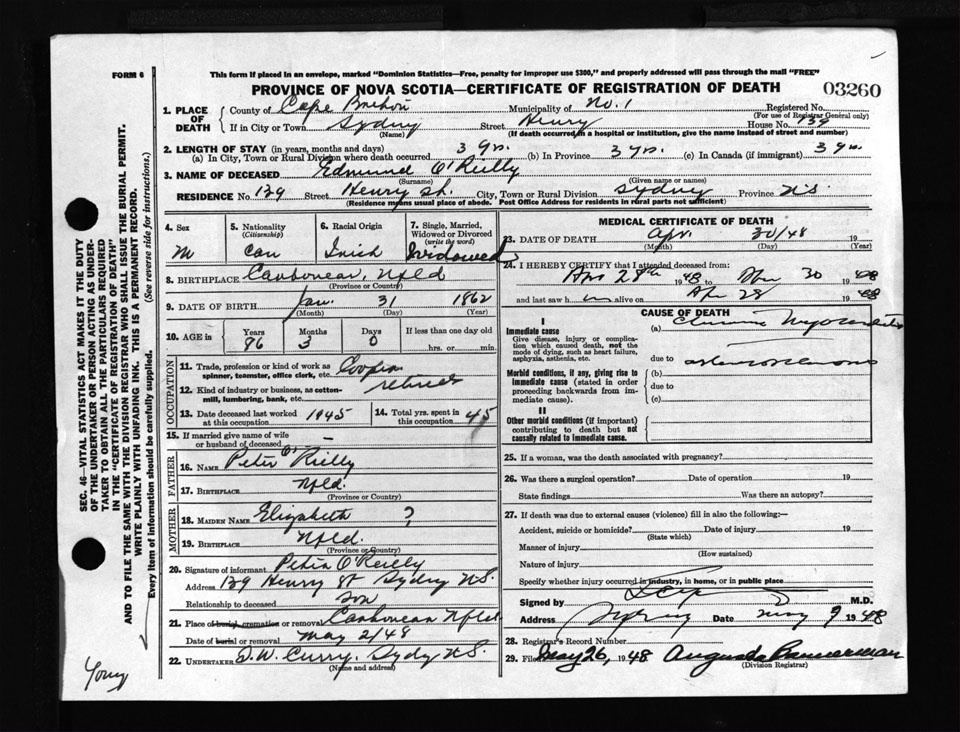 FORM 6
This form if placed in an envelope, marked "Dominion Statistics—Free, penalty for improper use $300," and properly addressed will pass through the mail "FREE"
PROVINCE OF NOVA SCOTIA—CERTIFICATE OF REGISTRATION OF DEATH
03260
1. PLACE OF DEATH
County of Cape Breton Municipality of No. 1 Registered No.
(For use of Registrar General only)
If in City or Town Sydney Street Henry House No. 139
(Name) (If death occurred in a hospital or institution, give the name instead of street and number)
2. LENGTH OF STAY (in years, months and days)
(a) In City, Town or Rural Division where death occurred 3 yrs. (b) In Province 3 yrs. (c) In Canada (if immigrant) 3 yrs
3. NAME OF DECEASED Edmund O'Reilly
(Surname) (Given name or names)
RESIDENCE No. 139 Street Henry St. City, Town or Rural Division Sydney Province N.S.
(Residence means usual place of abode. Post Office Address for residents in rural parts not sufficient)
4. Sex
M
5. Nationality
(Citizenship)
Can
6. Racial Origin
Irish
7. Single, Married, Widowed or Divorced
(write the word)
Widowed
8. BIRTHPLACE Carbonear, Nfld
(Province or Country)
9. DATE OF BIRTH Jan. 31 1862
(Month) (Day) (Year)
10. AGE in
Years Months Days If less than one day old
86 3 0 hrs. or min.
OCCUPATION
11. Trade, profession or kind of work as spinner, teamster, office clerk, etc. Cooper
retired
12. Kind of industry or business, as cotton-mill, lumbering, bank, etc.
13. Date deceased last worked at this occupation 1945
14. Total yrs. spent in this occupation 45
15. If married give name of wife or husband of deceased —
FATHER
16. NAME Peter O'Reilly
17. BIRTHPLACE Nfld.
(Province or Country)
MOTHER
18. MAIDEN NAME Elizabeth ?
19. BIRTHPLACE Nfld.
(Province or Country)
20. Signature of informant Peter O'Reilly
Address 139 Henry St Sydney N.S.
Relationship to deceased Son
21. Place of burial, cremation or removal Carbonear Nfld
Date of burial or removal May 2/48
22. UNDERTAKER D.W. Curry, Sydney N.S.
(Name and address)
MEDICAL CERTIFICATE OF DEATH
23. DATE OF DEATH Apr. 30/48 19
(Month) (Day) (Year)
24. I HEREBY CERTIFY that I attended deceased from:
Apr 28th 1948 to Apr 30 1948
and last saw h im alive on Apr 28 1948
CAUSE OF DEATH
I
Immediate cause
Give disease, injury or complication which caused death, not the mode of dying, such as heart failure, asphyxia, asthenia, etc.
(a) Chronic Myocarditis
due to arteriosclerosis
Morbid conditions, if any, giving rise to immediate cause (stated in order proceeding backwards from immediate cause).
(b)
due to
(c)
II
Other morbid conditions (if important) contributing to death but not causally related to immediate cause.
25. If a woman, was the death associated with pregnancy?
26. Was there a surgical operation? Date of operation 19
State findings Was there an autopsy?
27. If death was due to external causes (violence) fill in also the following:—
Accident, suicide or homicide? Date of injury 19
(State which)
Manner of injury
(How sustained)
Nature of injury
Specify whether injury occurred in industry, in home, or in public place
Signed by M.D.
Address Sydney Date May 9 1948
28. Registrar's Record Number
29. Filed May 26, 1948 Augusta Bannerman
(Division Registrar)
SEC. 46—VITAL STATISTICS ACT MAKES IT THE DUTY
OF THE UNDERTAKER OR PERSON ACTING AS UNDER-
TAKER TO OBTAIN ALL THE PARTICULARS REQUIRED
IN THE "CERTIFICATE OF REGISTRATION OF DEATH"
AND TO FILE THE SAME WITH THE DIVISION REGISTRAR WHO SHALL ISSUE THE BURIAL PERMIT.
WRITE PLAINLY WITH UNFADING INK. THIS IS A PERMANENT RECORD.
Every item of information should be carefully supplied. (See reverse side for instructions.)